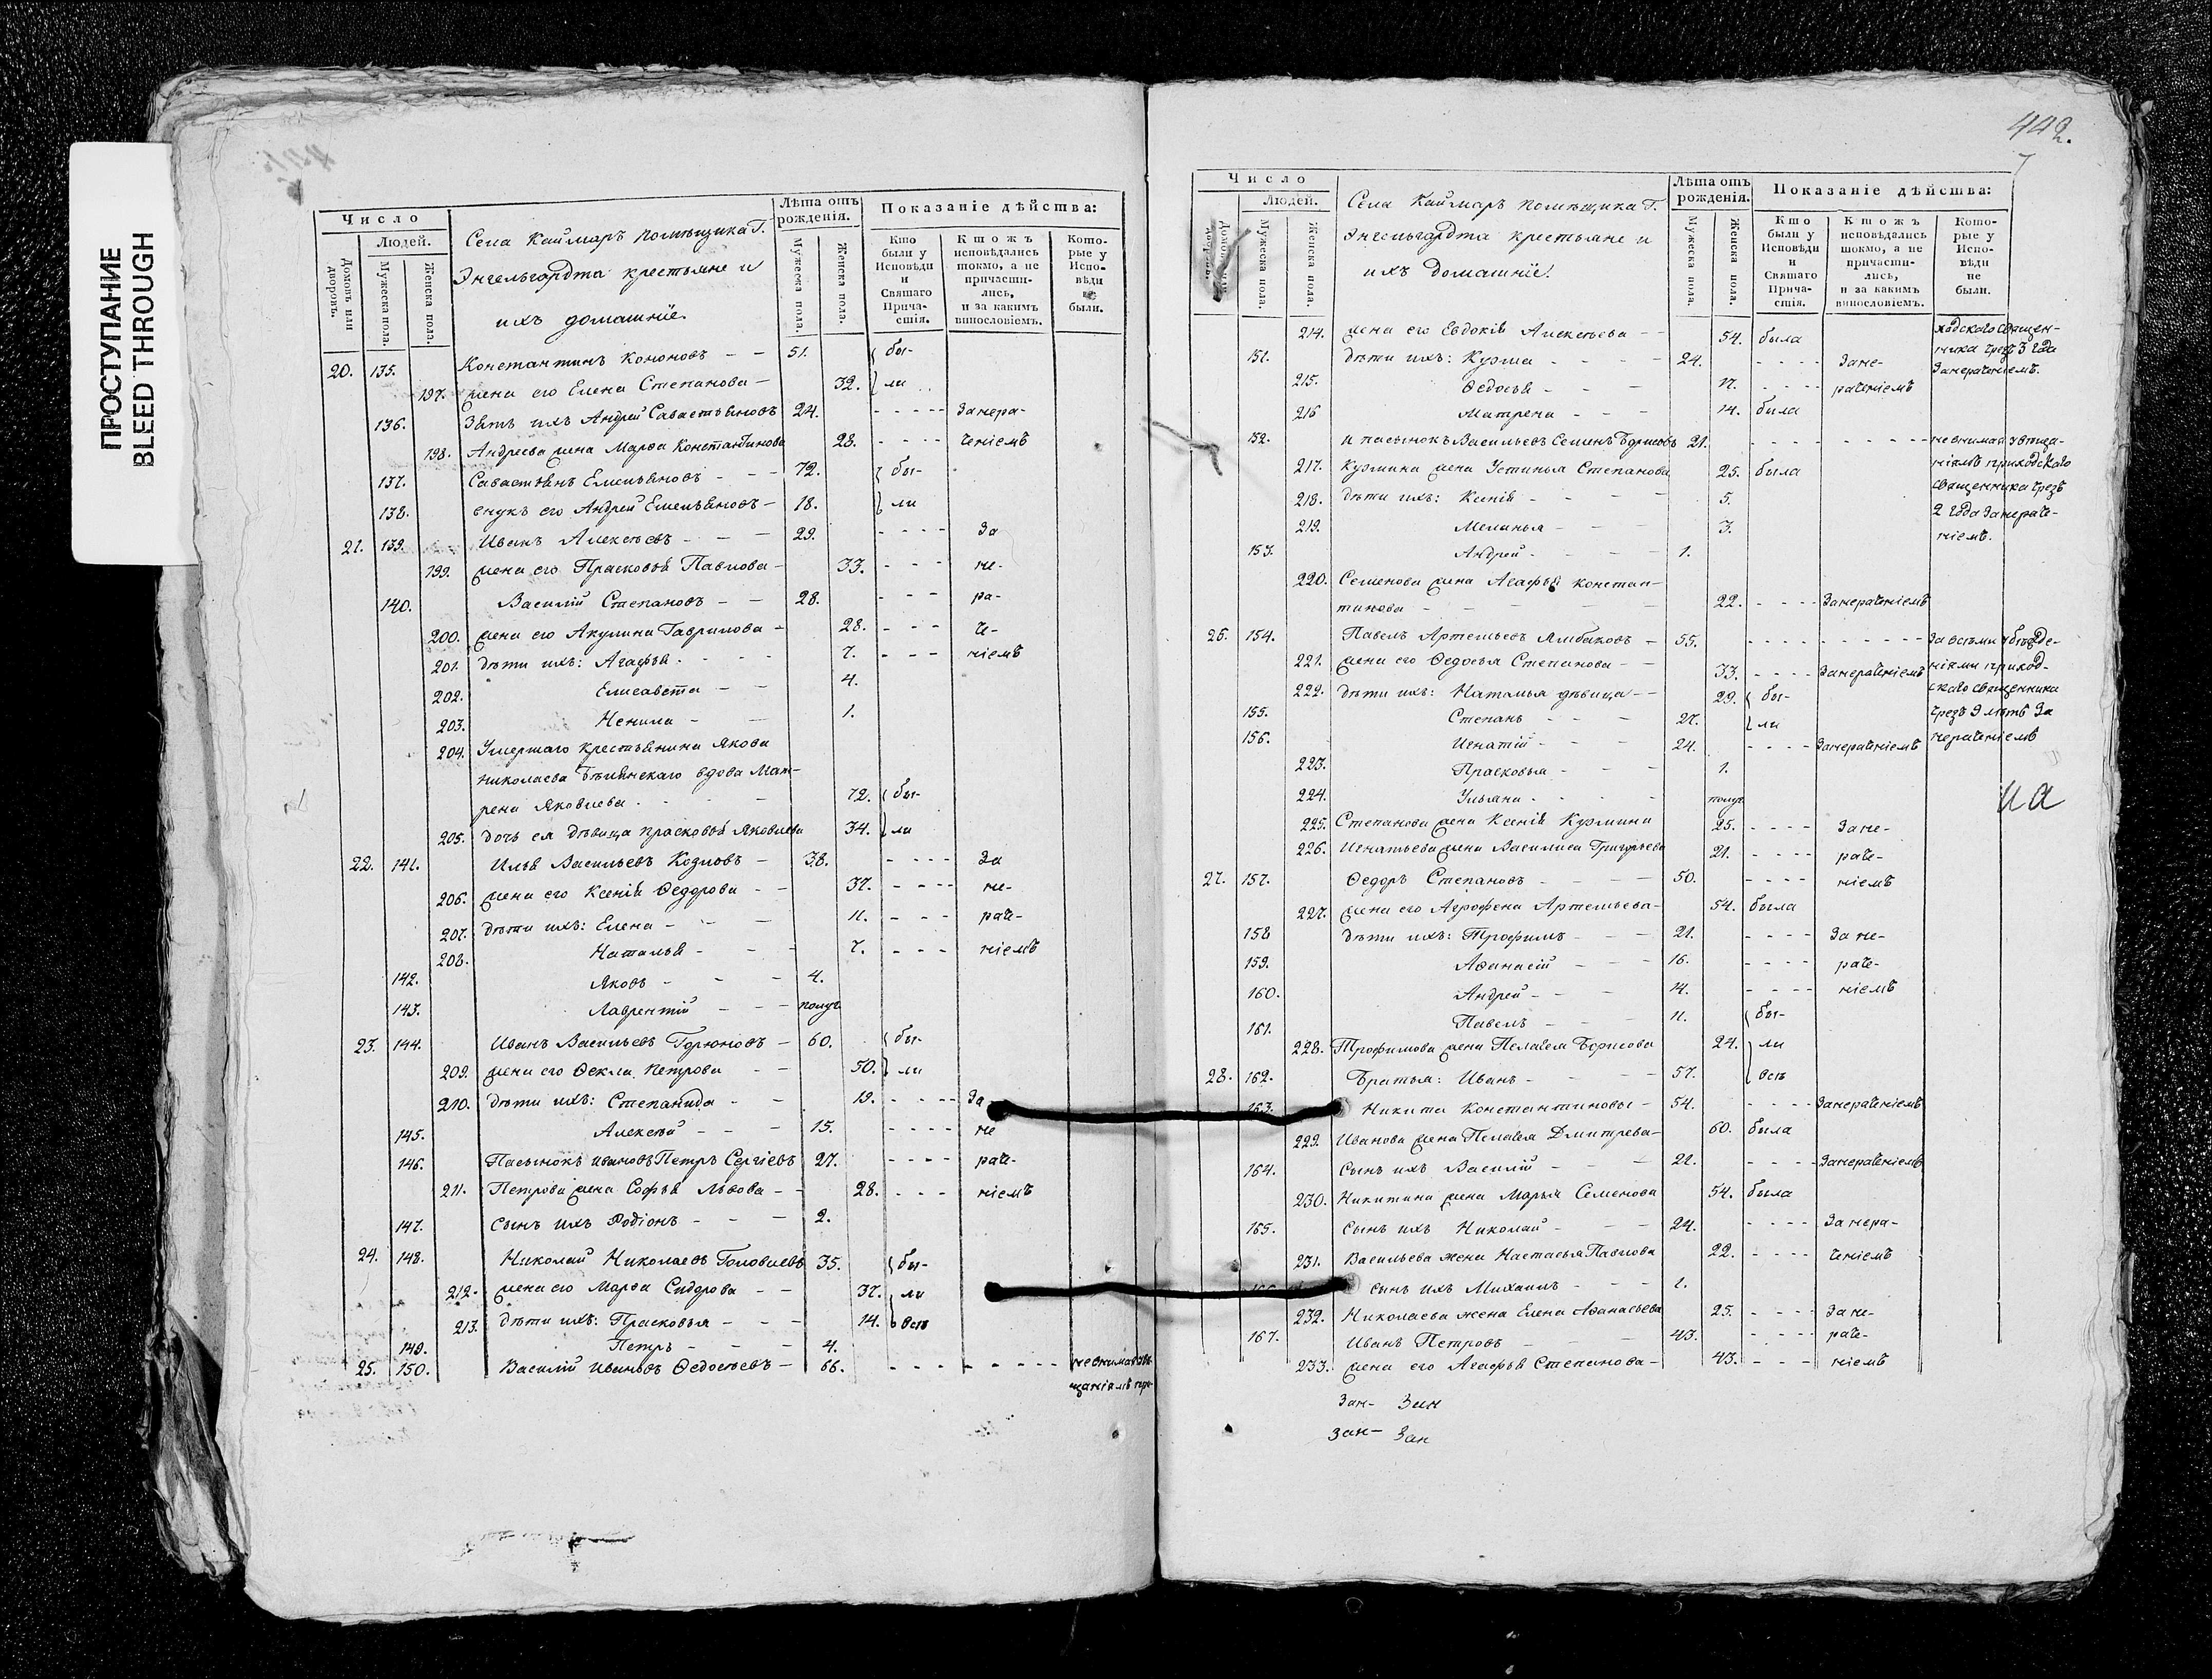 ПРОСТУПАНИЕ
BLEED THROUGH
Число
Людей.
Домовъ или дворовъ.
Мужеска пола.
Женска пола.
Села Каймаръ помѣщика Г.
Энгельгардта крестьяне и
ихъ домашніе.
Лѣта отъ рожденія.
Мужеска пола.
Женска пола.
Показаніе дѣйства:
Кто были у Исповѣди и Святаго Прича-стія.
Ктожъ исповѣдались токмо, а не причасти-лись, и за какимъ винословіемъ.
Кото-рые у Испо-вѣди не были.
20. 135. Константинъ Кононовъ - - 51. бы-
197. жена его Елена Степанова - 32. ли
136. Зять ихъ Андрей Савастьяновъ 24. - - - - - Занера-
198. Андреева жена Марѳа Константинова 28. - - - - ченіемъ
137. Савастьянъ Емельяновъ - - - 72. бы-
138. внукъ его Андрей Емельяновъ - 18. ли
21. 139. Иванъ Алексѣевъ - - - 29. - - - - За
199. жена его Прасковья Павлова - 33. - - - не-
140. Василій Степановъ - - 28. - - - ра-
200. жена его Акулина Гаврилова - 28. - - - че-
201. дѣти ихъ: Агафья - - - - 7. - - - ніемъ
202. Елисавета - - 4.
203. Ненила - - 1.
204. Умершаго крестьянина Якова
Николаева вдова Мат-
рена Яковлева - - - 72. бы-
205. дочь ея дѣвица Прасковья Яковлева 34. ли
22. 141. Илья Васильевъ Козловъ - 38. - - - - За
206. жена его Ксенія Ѳедорова - - 37. - - - - не-
207. дѣти ихъ: Елена - - - 11. - - - раче-
208. Наталья - - - 7. - - - ніемъ
142. Яковъ - - - 4.
143. Лаврентій - - - полуг
23. 144. Иванъ Васильевъ Горюновъ - 60. бы-
209. жена его Ѳекла Петрова - - 50. ли
210. дѣти ихъ: Степанида - - 19. - - - - За
145. Алексѣй - - - 15. - - - - не
146. Пасынокъ Ивановъ Петръ Сергіевъ 27. - - - - раче-
211. Петрова жена Софья Львова - - 28. - - - ніемъ
147. Сынъ ихъ Родіонъ - - - 2.
24. 148. Николай Николаевъ Головлевъ 35. бы-
212. жена его Марѳа Сидорова - - 37. ли
213. дѣти ихъ: Прасковья - - - 14. всѣ
149. Петръ - - - 4.
25. 150. Василій Ивановъ Ѳедосѣевъ - 66. - - - - - - - - - невнимая увѣ-
щаніямъ при-
442.
Число
Людей.
Мужеска пола.
Женска пола.
Села Каймаръ помѣщика Г.
Энгельгардта крестьяне и
ихъ домашніе.
Лѣта отъ рожденія.
Мужеска пола.
Женска пола.
Показаніе дѣйства:
Кто были у Исповѣди и Святаго Прича-стія.
Ктожъ исповѣдались токмо, а не причасти-лись, и за какимъ винословіемъ.
Кото-рые у Испо-вѣди не были.
214. жена его Евдокія Алексѣева - - 54. была ходскаго священ-
ника чрезъ 3 года
151. дѣти ихъ: Кузма - - - - 24. - - - - Зане- Занераченіемъ.
215. Ѳедосья - - - 17. - - - - раченіемъ
216 Матрена - - - 14. была
152. и пасынокъ Васильевъ Семенъ Борисовъ 21. - - - - - - - - - невнимая увѣща-
217. Кузмина жена Устинья Степанова 25. была ніямъ приходскаго
священника чрезъ
218. дѣти ихъ: Ксенія - - - - 5. 2 года Занераче-
219. Меланья - - - 3. ніемъ.
153. Андрей - - - - 1.
220. Семенова жена Агафья Констан-
тинова - - - - - 22. - - - - Занераченіемъ
26. 154. Павелъ Артемьевъ - 55. - - - - - - - - - - За всѣми убѣжде-
221. жена его Ѳедосья Степанова - - 33. - - - - Занераченіемъ ніями приход-
222. дѣти ихъ: Наталья дѣвица - - 29. бы- скаго священника
155. Степанъ - - - 27. ли чрезъ 9 лѣтъ За
156. Игнатій - - - 24. - - - - Занераченіемъ нераченіемъ
223. Прасковья - - - 1.
224. Ульяна - - - - полуг
на
225. Степанова жена Ксенія Кузмина 25. - - - - Зане-
226. Игнатьева жена Василиса Григорьева 21. - - - - раче-
27. 157. Ѳедоръ Степановъ - - - - 50. - - - - ніемъ
227. жена его Агрофена Артемьева - 54. была
158 дѣти ихъ: Трофимъ - - - 21. - - - - За не-
159. Аѳанасій - - - 16. - - - - раче-
160. Андрей - - - 14. - - - - ніемъ
161. Павелъ - - - - 11. бы-
228. Трофимова жена Пелагея Борисова 24. ли
28. 162. Братья: Иванъ - - - - 57. всѣ
163. Никита Константиновы - 54. - - - - Занераченіемъ
229. Иванова жена Пелагея Дмитрева - 60. была
164. Сынъ ихъ Василій - - - 21. - - - - Занераченіемъ
230. Никитина жена Марья Семенова 54. была
165. Сынъ ихъ Николай - - - 24. - - - - Занера-
231. Васильева жена Настасья Павлова 22. - - - - ченіемъ
166. сынъ ихъ Михаилъ - - - 1.
232. Николаева жена Елена Аѳанасьева 25. - - - - Зане-
167. Иванъ Петровъ - - - 43. - - - - раче-
233. жена его Агафья Степанова - 43. - - - ніемъ
Зан- Зан
Зан- Зан